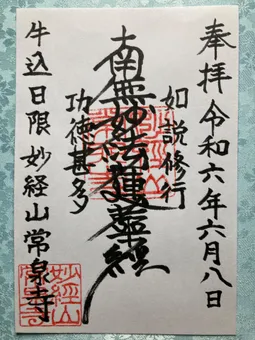 奉拝 令和六年六月八日
如説修行
南無妙法蓮華経
功徳甚多
牛込日限 妙経山常泉寺
妙経山
常泉寺